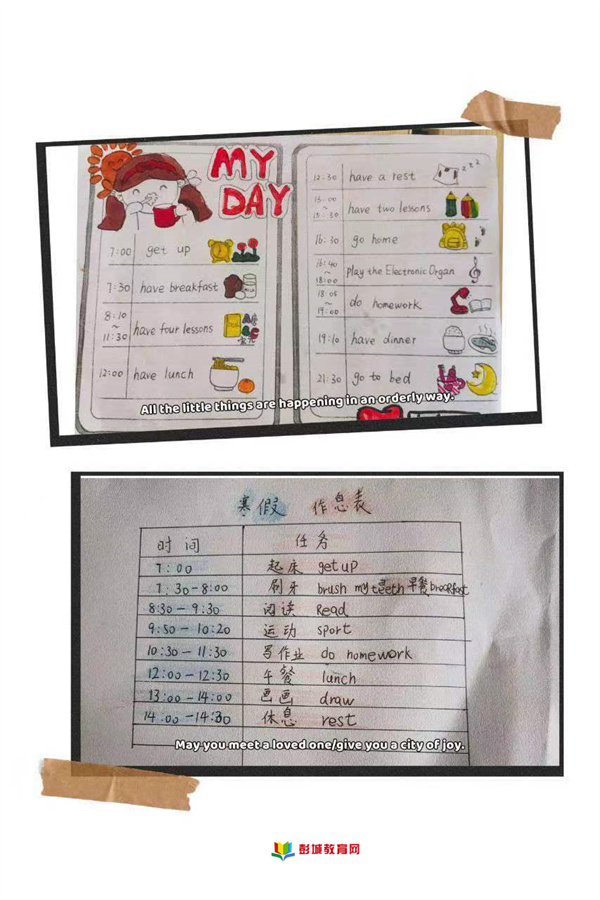 MY
DAY
7:00 get up
7:30 have breakfast
8:10
~
11:30 have four lessons
12:00 have lunch
12:30 have a rest
have two lessons
16:30 go home
16:40
~
18:00 play the Electronic Organ
~
19:00 do homework
19:10 have dinner
21:30 go to bed
All the little things are happening in an orderly way.
寒假 作息表
时间 任务
7:00 起床 get up
7:30-8:00 刷牙 brush my teeth 早餐 breakfast
8:30-9:30 阅读 Read
9:50-10:20 运动 sport
10:30-11:30 写作业 do homework
12:00-12:30 午餐 lunch
13:00-14:00 画画 draw
14:00-14:30 休息 rest
May you meet a loved one/give you a city of joy.
彭城教育网